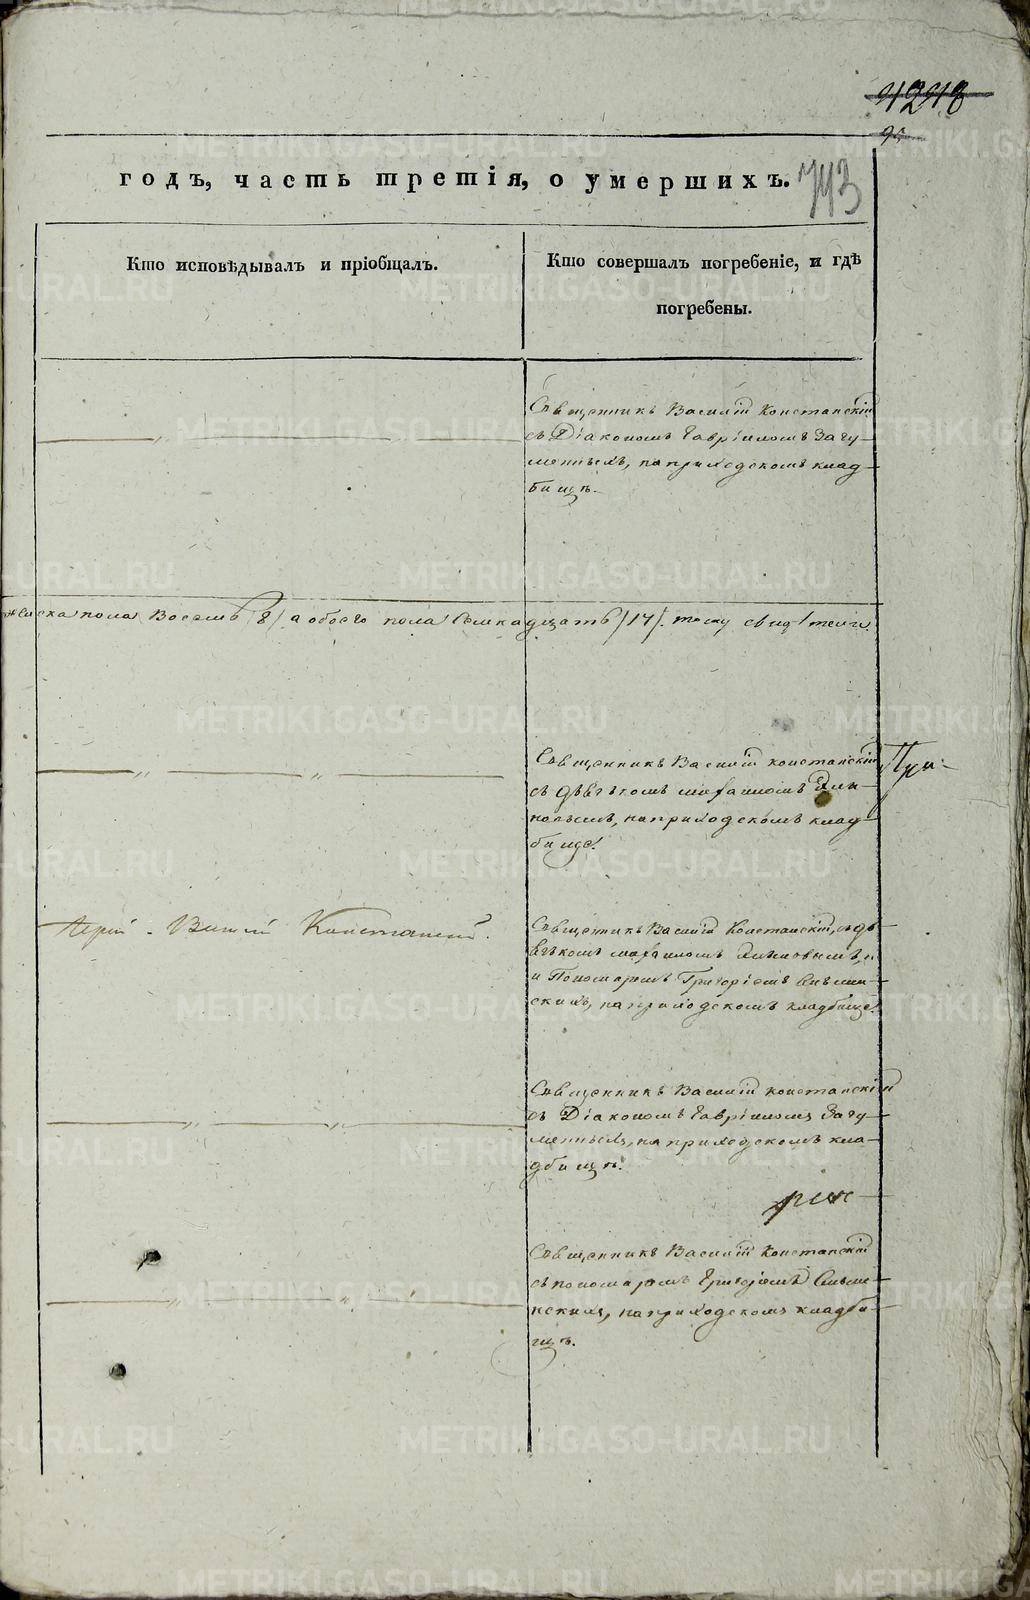 годъ, часть третія, о умершихъ.
743
Кто исповѣдывалъ и пріобщалъ.
Кто совершалъ погребеніе, и гдѣ
погребены.
Священникъ Василій Констанскій
съ Діакономъ Гавріиломъ Загу-
менныхъ, на приходскомъ клад-
бищѣ.
женска пола Восемь /8/ а обоего пола Семнадцать /17/.
Священникъ Василій Констанскій
съ дьячкомъ
на приходскомъ клад-
бище.
При-
Іерей Василій Констанскій.
Священникъ Василій Констанскій, съ дь-
ячкомъ
и Пономаремъ Григоріемъ
на приходскомъ кладбище.
Священникъ Василій Констанскій
съ Діакономъ Гавріиломъ Загу-
менныхъ, на приходскомъ кла-
дбищѣ.
Священникъ Василій Констанскій
съ пономаремъ Григоріемъ
на приходскомъ кладби-
щѣ.
METRIKI.GASO-URAL.RU